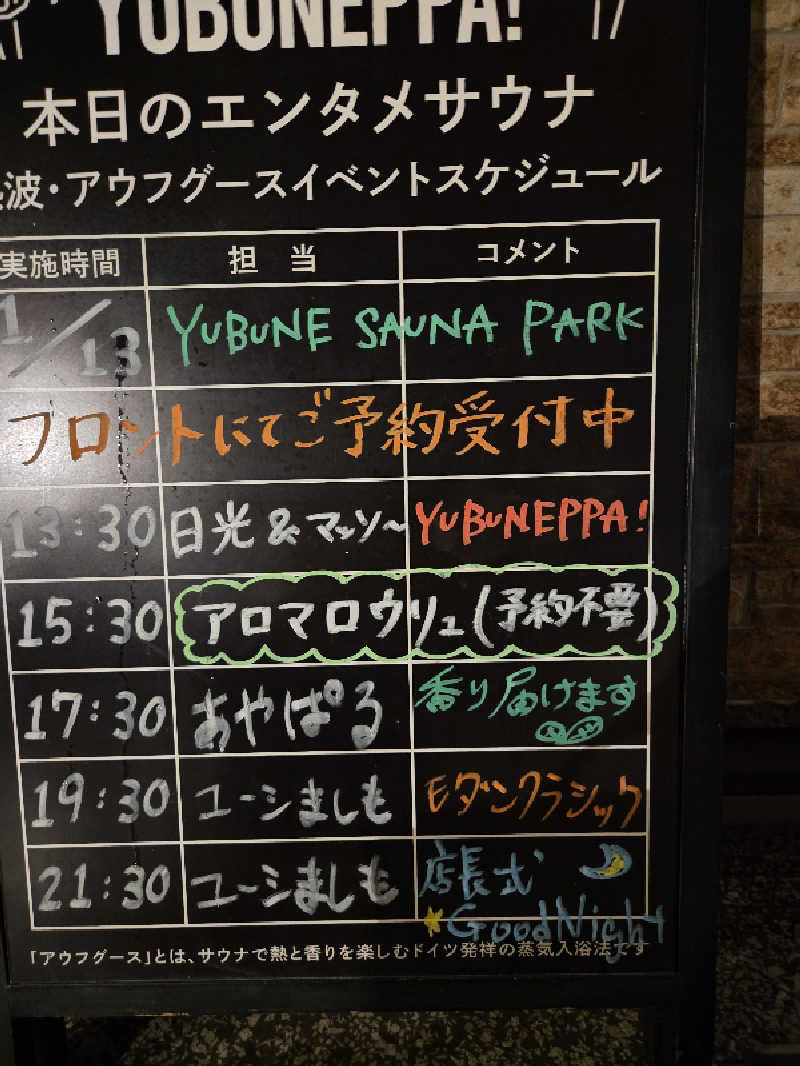 YUBUNEPPA!
本日のエンタメサウナ
波・アウフグースイベントスケジュール
実施時間 担当 コメント
1/13 YUBUNE SAUNA PARK
フロントにてご予約受付中
13:30 日光&マッソ〜 YUBUNEPPA!
15:30 アロマロウリュ(予約不要)
17:30 あやぱる 香り届けます
19:30 ユーシましも モダンクラシック
21:30 ユーシましも 店長式
GoodNight
「アウフグース」とは、サウナで熱と香りを楽しむドイツ発祥の蒸気入浴法です